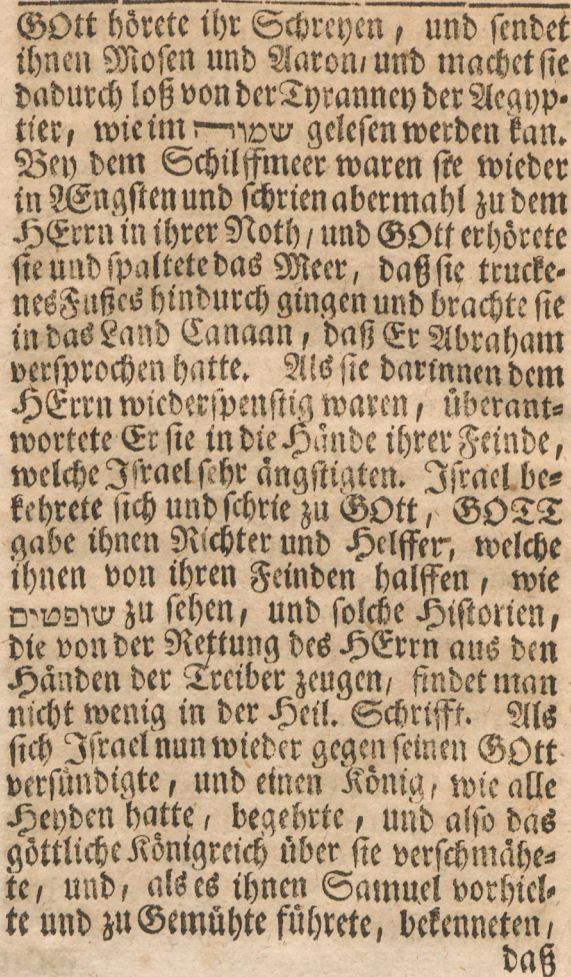 GOtt hörete ihr Schreyen, und sendet
ihnen Mosen und Aaron, und machet sie
dadurch loß von der Tyranney der Aegyp-
tier, wie im שמור gelesen werden kan.
Bey dem Schilffmeer waren sie wieder
in AEngsten und schrien abermahl zu dem
HErrn in ihrer Noth, und GOtt erhörete
sie und spaltete das Meer, daß sie trucke-
nes Fußes hindurch gingen und brachte sie
in das Land Canaan, daß Er Abraham
versprochen hatte. Als sie darinnen dem
HErrn wiederspenstig waren, überant-
wortete Er sie in die Hände ihrer Feinde,
welche Israel sehr ängstigten. Israel be-
kehrete sich und schrie zu GOtt, GOTT
gabe ihnen Richter und Helffer, welche
ihnen von ihren Feinden halffen, wie
שופטים zu sehen, und solche Historien,
die von der Rettung des HErrn aus den
Händen der Treiber zeugen, findet man
nicht wenig in der Heil. Schrifft. Als
sich Israel nun wieder gegen seinen GOtt
versündigte, und einen König, wie alle
Heyden hatte, begehrte, und also das
göttliche Königreich über sie verschmähe-
te, und, als es ihnen Samuel vorhiel-
te und zu Gemühte führete, bekenneten,
daß